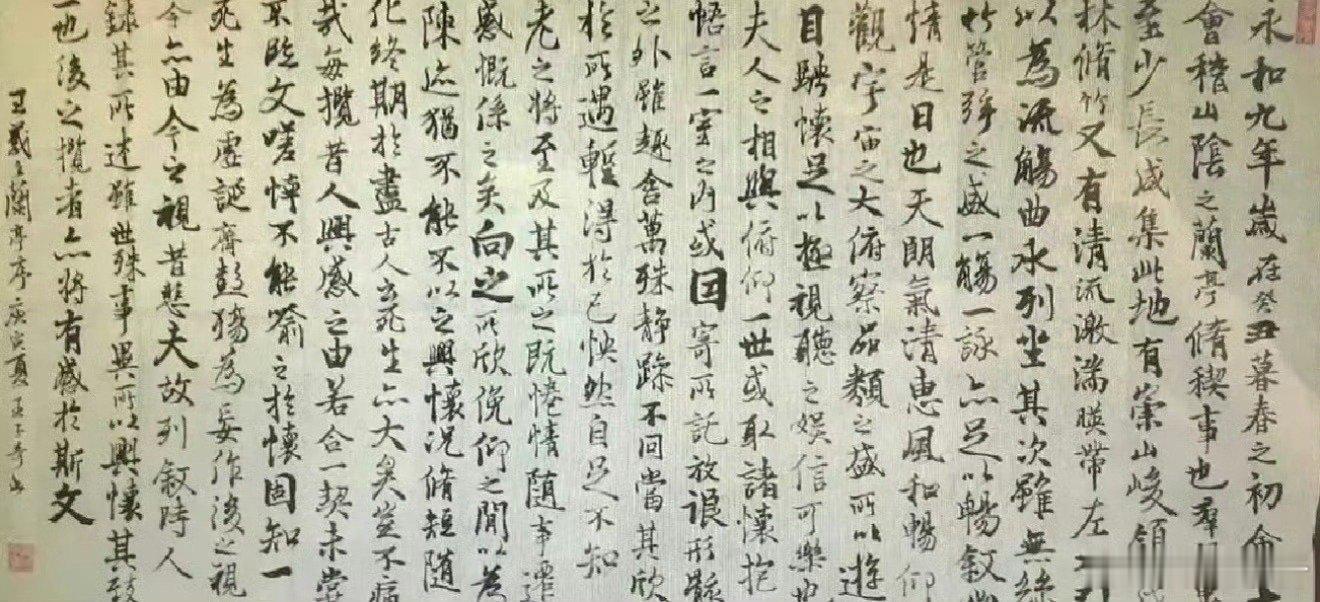 永和九年歲在癸丑暮春之初
會稽山陰之蘭亭脩稧事也羣
至少長咸集此地有崇山峻領
林脩竹又有清流激湍暎帶左
以為流觴曲水列坐其次雖無絲
竹管弦之盛一觴一詠亦足以暢敘幽
情是日也天朗氣清惠風和暢仰
觀宇宙之大俯察品類之盛所以遊
目騁懷足以極視聽之娛信可樂也
夫人之相與俯仰一世或取諸懷抱
悟言一室之內或因寄所託放浪形骸
之外雖趣舍萬殊靜躁不同當其欣
於所遇暫得於己怏然自足不知
老之將至及其所之既惓情隨事遷
感慨係之矣向之所欣俛仰之間以為
陳迹猶不能不以之興懷況脩短隨
化終期於盡古人云死生亦大矣豈不痛
哉每攬昔人興感之由若合一契未嘗
不臨文嗟悼不能喻之於懷固知一
死生為虛誕齊彭殤為妄作後之視
今亦由今之視昔悲夫故列敘時人
錄其所述雖世殊事異所以興懷其致
一也後之攬者亦將有感於斯文
王羲之蘭亭序庚寅夏王子奇書